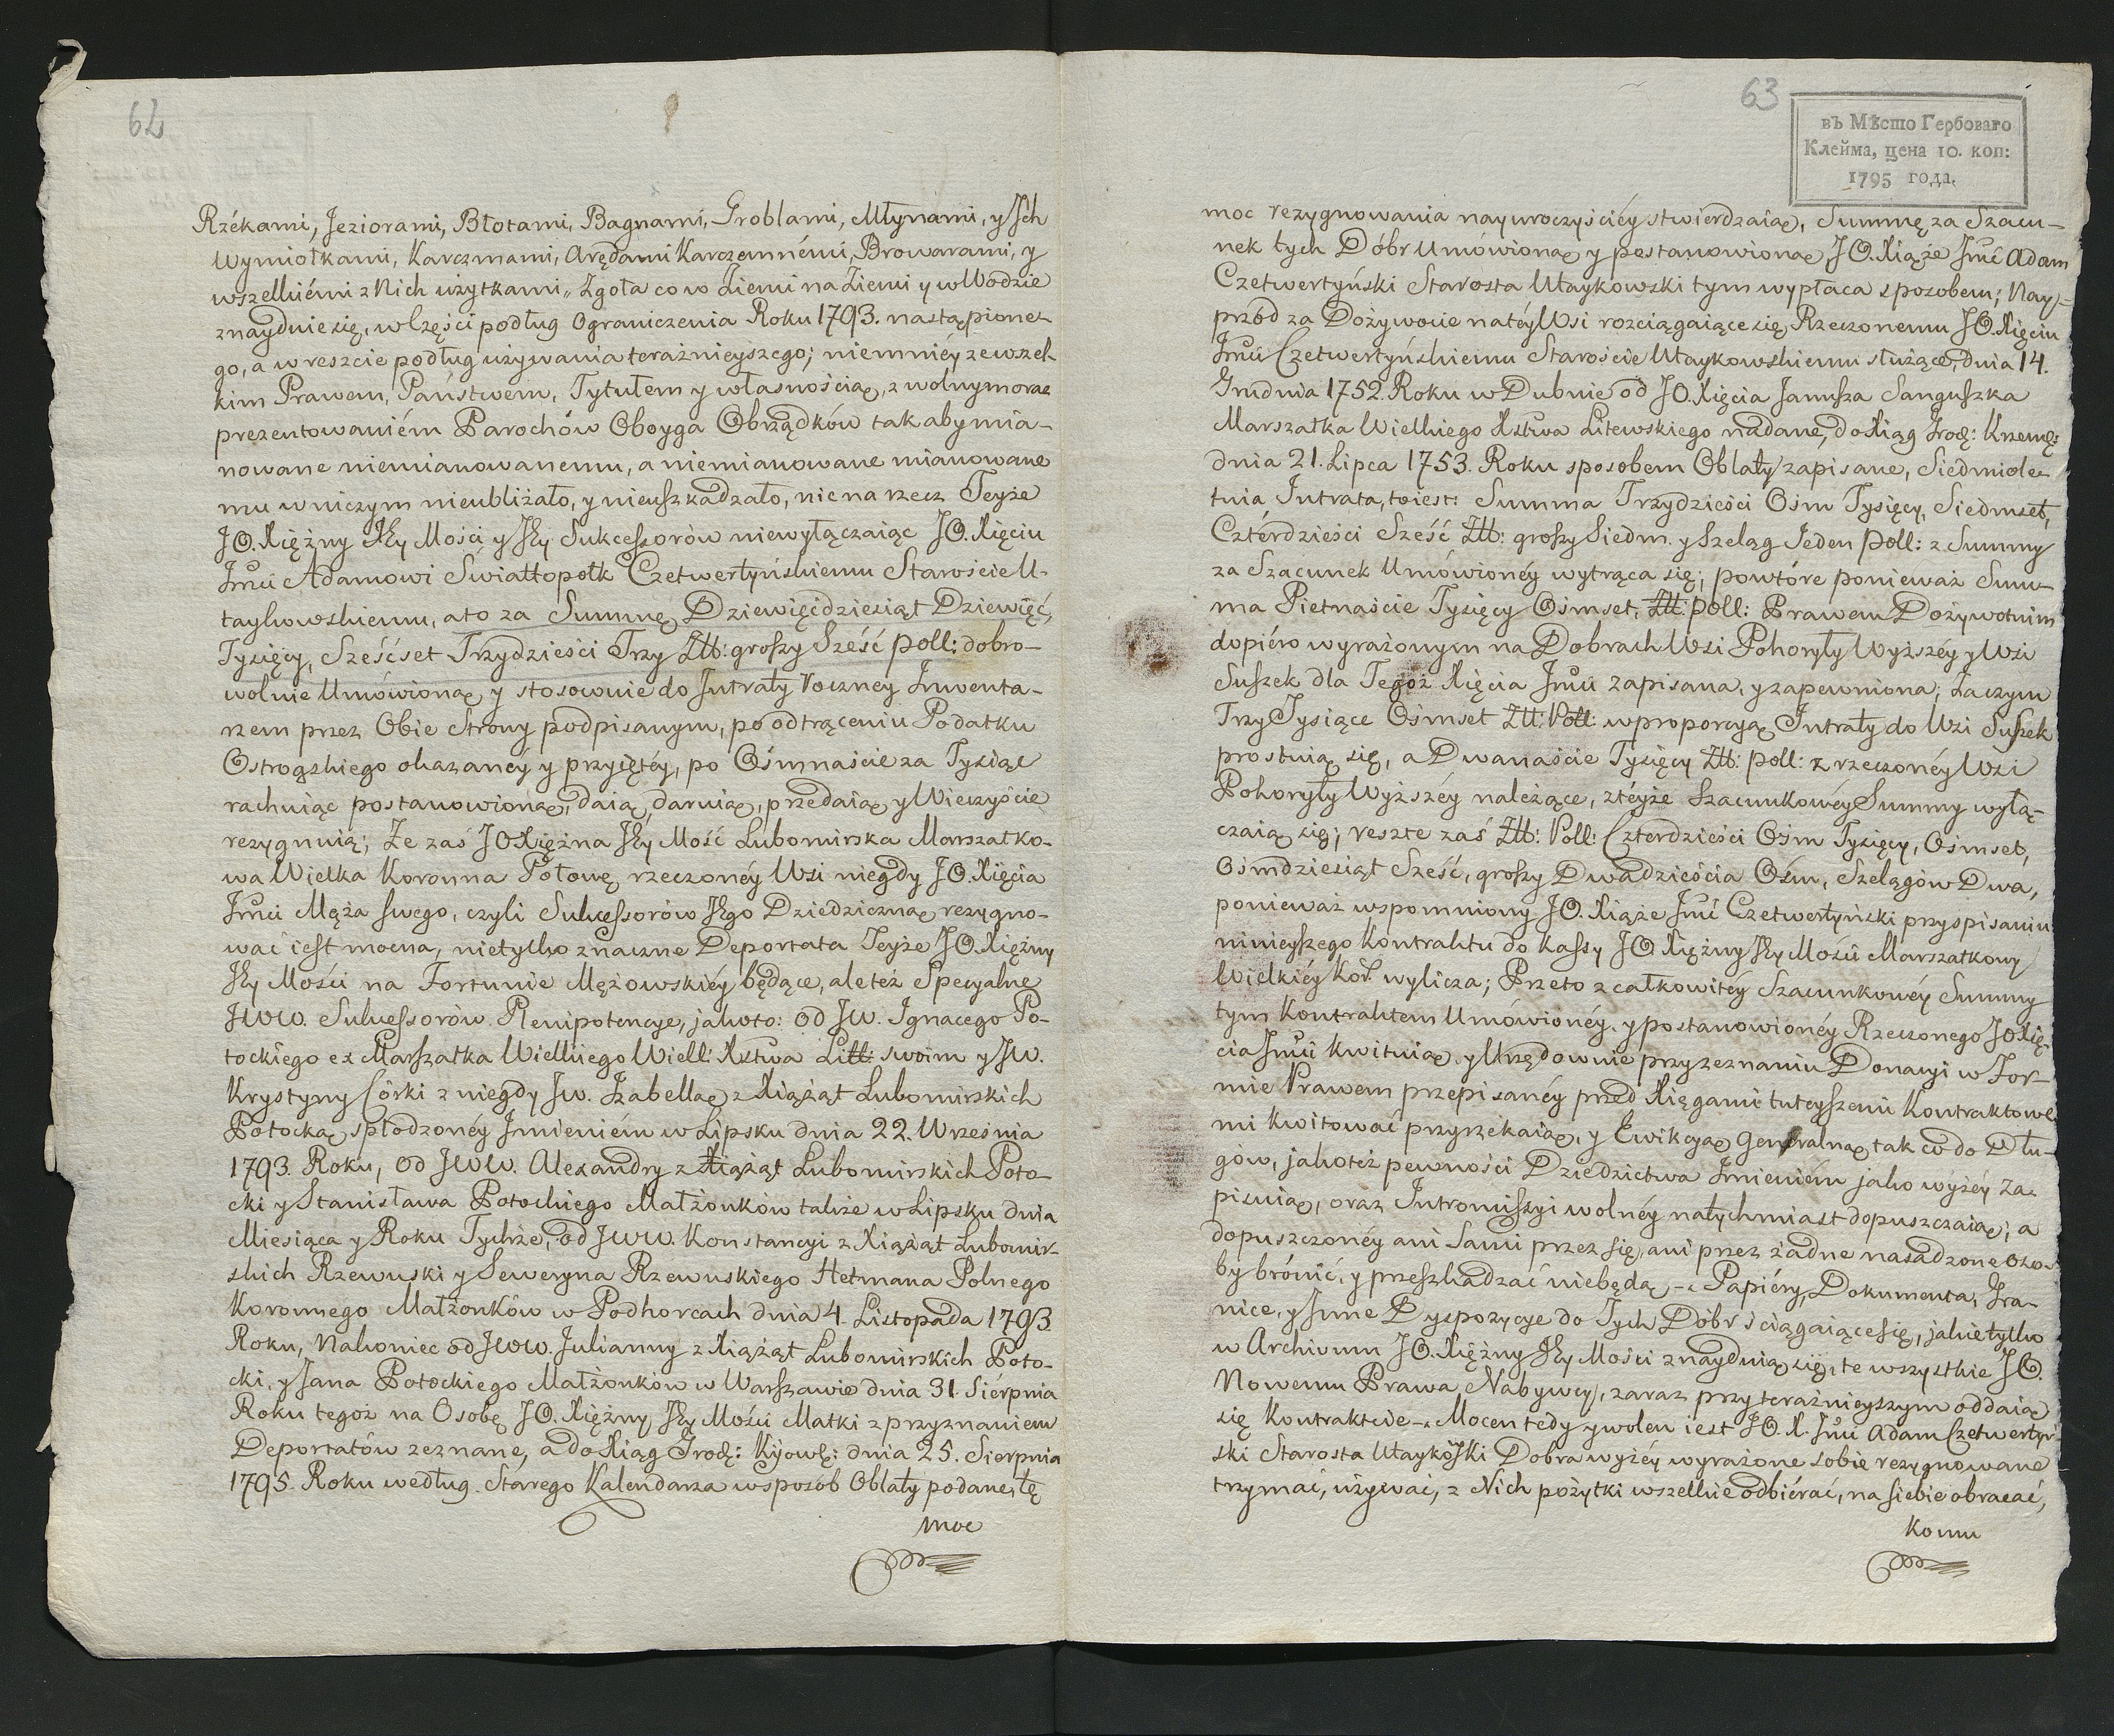 62
Rzékami, Jeziorami, Błotami, Bagnami, Groblami, Młynami, y Jch
Wymiołkami, Karczmami, Arędami Karczemnémi, Browarami, y
wszelkiémi z Nich użytkami „ Zgoła co w Ziemi na Ziemi y w Wodzie
znayduie się, w Części podług Ograniczenia Roku 1793. nastąpione-
go, a w reszcie podług używania teraźnieyszego; niemniéy ze wszel-
kim Prawem, Państwem, Tytułem y własnością, z wolnym oraz
prezentowaniém Parochów Oboyga Obrządków tak aby mia-
nowane niemianowanemu, a niemianowane mianowane
mu w niczym nieubliżało, y nieuszkadzało, nic na rzecz Teyże
JO. Xiężny Jey Mości y Jey Sukcessorów niewyłączaiąc JO. Xięciu
Jmci Adamowi Swiattopołk Czetwertyńskiemu Staroście U-
taykowskiemu, a to za Summę Dziewięćdziesiąt Dziewięć,
Tysięcy, Sześćset Trzydzieści Trzy Złł: groszy Sześć poll: dobro-
wolnie Umówioną y stosownie do Jntraty roczney Jnwenta-
rzem przez Obie Strony podpisanym, po odtrąceniu Podatku
Ostrogskiego okazanéy y przyiętéy, po Ośmnaście za Tysiąc
rachuiąc postanowioną, daią, daruią, przedaią y Wieczyście
rezygnuią; Że zaś JO Xiężna Jey Mość Lubomirska Marszałko-
wa Wielka Koronna Połowę rzeczonéy Wsi niegdy JO. Xięcia
Jmci Męża swego, czyli Sukcessorów Jego Dziedziczną rezygno-
wać iest mocna, nietylko znaczne Deportata Teyże JO. Xiężny
Jey Mości na Fortunie Mężowskiéy będące, ale też Specyalne
JWW. Sukcessorów Plenipotencye, jakoto: od JW. Jgnacego Po-
tockiego ex Marszałka Wielkiego Wiell: Xstwa Litt: swoim y JW.
Krystyny Córki z niegdy Jw. Jzabellą z Xiążąt Lubomirskich
Potocką spłodzonéy Jmieniém w Lipsku dnia 22. Września
1793. Roku, od JWW. Alexandry z Xiążąt Lubomirskich Poto-
cki y Stanisława Potockiego Małżonków także w Lipsku dnia
Miesiąca y Roku Tychże, od JWW. Konstancyi z Xiążąt Lubomir-
skich Rzewuski y Seweryna Rzewuskiego Hetmana Polnego
Koronnego Małżonków w Podhorcach dnia 4. Listopada 1793
Roku, Nakoniec od JWW. Julianny z Xiążąt Lubomirskich Poto-
cki, y Jana Potockiego Małżonków w Warszawie dnia 31. Siérpnia
Roku tegoż na Osobę JO. Xiężny Jey Mości Matki z przyznaniem
Deportatów zeznane, a do Xiąg Grodz: Kijows: dnia 25. Sierpnia
1795. Roku według Starego Kalendarza w sposób Oblaty podane, tę
moc
63
въ Мѣсто Гербоваго
Клейма, цена 10. коп:
1795 года.
moc rezygnowania nayuroczyściéy stwierdzaią, Summę za Szacu-
nek tych Dóbr Umówioną y postanowioną JO. Xiąże Jmć Adam
Czetwertyński Starosta Utaykowski tym wypłaca sposobem; Nay-
przód za Dożywocie na téy Wsi rozciągaiące się, Rzeczonemu JO. Xięciu
Jmci Czetwertyńskiemu Staroście Utaykowskiemu służące, dnia 14.
Grudnia 1752. Roku w Dubnie od JO. Xięcia Janusza Sanguszka
Marszałka Wielkiego Xstwa Litewskiego nadane, do Xiąg Grodz: Krzem:
dnia 21. Lipca 1753. Roku sposobem Oblaty zapisane, Siedmiole-
tnia Jntrata, to iest: Summa Trzydzieści Ośm Tysięcy, Siedmset,
Czterdzieści Sześć Złł: groszy Siedm. y Szeląg Jeden poll: z Summy
za Szacunek Umówionéy wytrąca się; powtóre ponieważ Sum-
ma Pietnaście Tysięcy Ośmset, Złł: poll: Prawem Dożywotnim
dopiéro wyrażonym na Dobrach Wsi Pohoryły Wyższéy y Wsi
Suszek dla Tegoż Xięcia Jmci zapisana, y zapewniona; Zaczym
Trzy Tysiące Ośmset Złł: Poll: w proporcyą Jntraty do Wsi Suszek
prostuią się, a Dwanaście Tysięcy Złł: poll: z rzeczonéy Wsi
Pohoryły Wyższéy należące, z téyże Szacunkowéy Summy wyłą-
czaią się; reszte zaś Złł: Poll: Czterdzieści Ośm Tysięcy, Ośmset,
Ośmdziesiąt Sześć, groszy Dwadzieścia Ośm, Szelągów Dwa,
ponieważ wspomniony JO. Xiąże Jmć Czetwertyński przy spisaniu
ninieyszego Kontraktu do Kassy JO Xiężny Jey Mości Marszałkowy
Wielkiéy Kor. wylicza; Przeto z całkowitéy Szacunkowéy Summy
tym Kontraktem Umówionéy, y postanowionéy Rzeczonego JO Xię-
cia Jmci kwituią y Urzędownie przy zeznaniu Donacyi w For-
mie Prawem przepisanéy przed Xięgami tuteyszemi Kontraktowe-
mi kwitować przyrzekaią, y Ewikcyą generalną tak co do Dłu-
gów, jakoteż pewności Dziedzictwa Jmieniém jako wyżéy za-
pisuią, oraz Jntromissyi wolnéy natychmiast dopuszczaią; a
dopuszczonéy ani Sami przez się, ani przez żadne nasadzone oso-
by brónić, y przeszkadzać niebędą -. Papiéry, Dokumenta, Gra-
nice, y Jnne Dyspozycye do Tych Dóbr ściągaiące się, jakie tylko
w Archivum JO. Xiężny Jey Mości znayduią się, te wszystkie JO.
Nowemu Prawa Nabywcy, zaraz przy teraźnieyszym oddaią
się Kontrakcie -. Mocen tedy y wolen iest JO. X. Jmć Adam Czetwertyń
ski Starosta Utaykoski Dobra wyżéy wyrażone sobie rezygnowane
trzymać, używać, z Nich pożytki wszelkie odbiérać, na siebie obracać,
komu